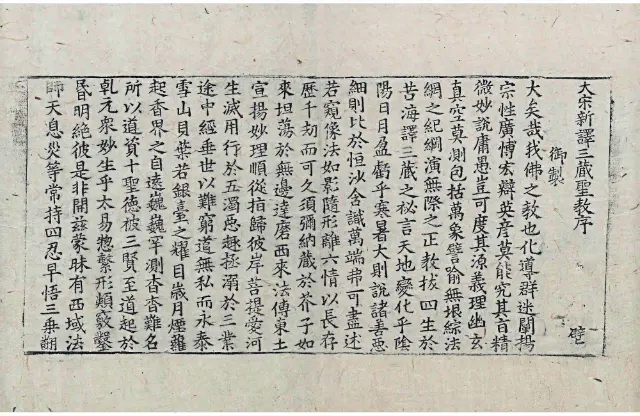 大宋新譯三藏聖教序 璧
御製
大矣哉我佛之教也化導群迷闡揚
宗性廣博宏辯英彥莫能究其旨精
微妙說庸愚豈可度其源義理幽玄
真空莫測包括萬象譬喻無垠綜法
網之紀綱演無際之正教拔四生於
苦海譯三藏之祕言天地變化乎陰
陽日月盈虧乎寒暑大則說諸善惡
細則比於恒沙含識萬端弗可盡述
若窺像法如影隨形離六情以長存
歷千劫而可久須彌納藏於芥子如
來坦蕩於無邊達磨西來法傳東土
宣揚妙理順從指歸彼岸菩提愛河
生滅用行於五濁惡趣拯溺於三業
途中經垂世以難窮道無私而永泰
雪山貝葉若銀臺之耀目歲月煙蘿
起香界之自遠巍巍罕測杳杳難名
所以道資十聖德被三賢至道起於
乹元衆妙生乎太易惣繫形類竅鑿
昏明絕彼是非開茲蒙昧有西域法
師天息災等常持四忍早悟三乘翻